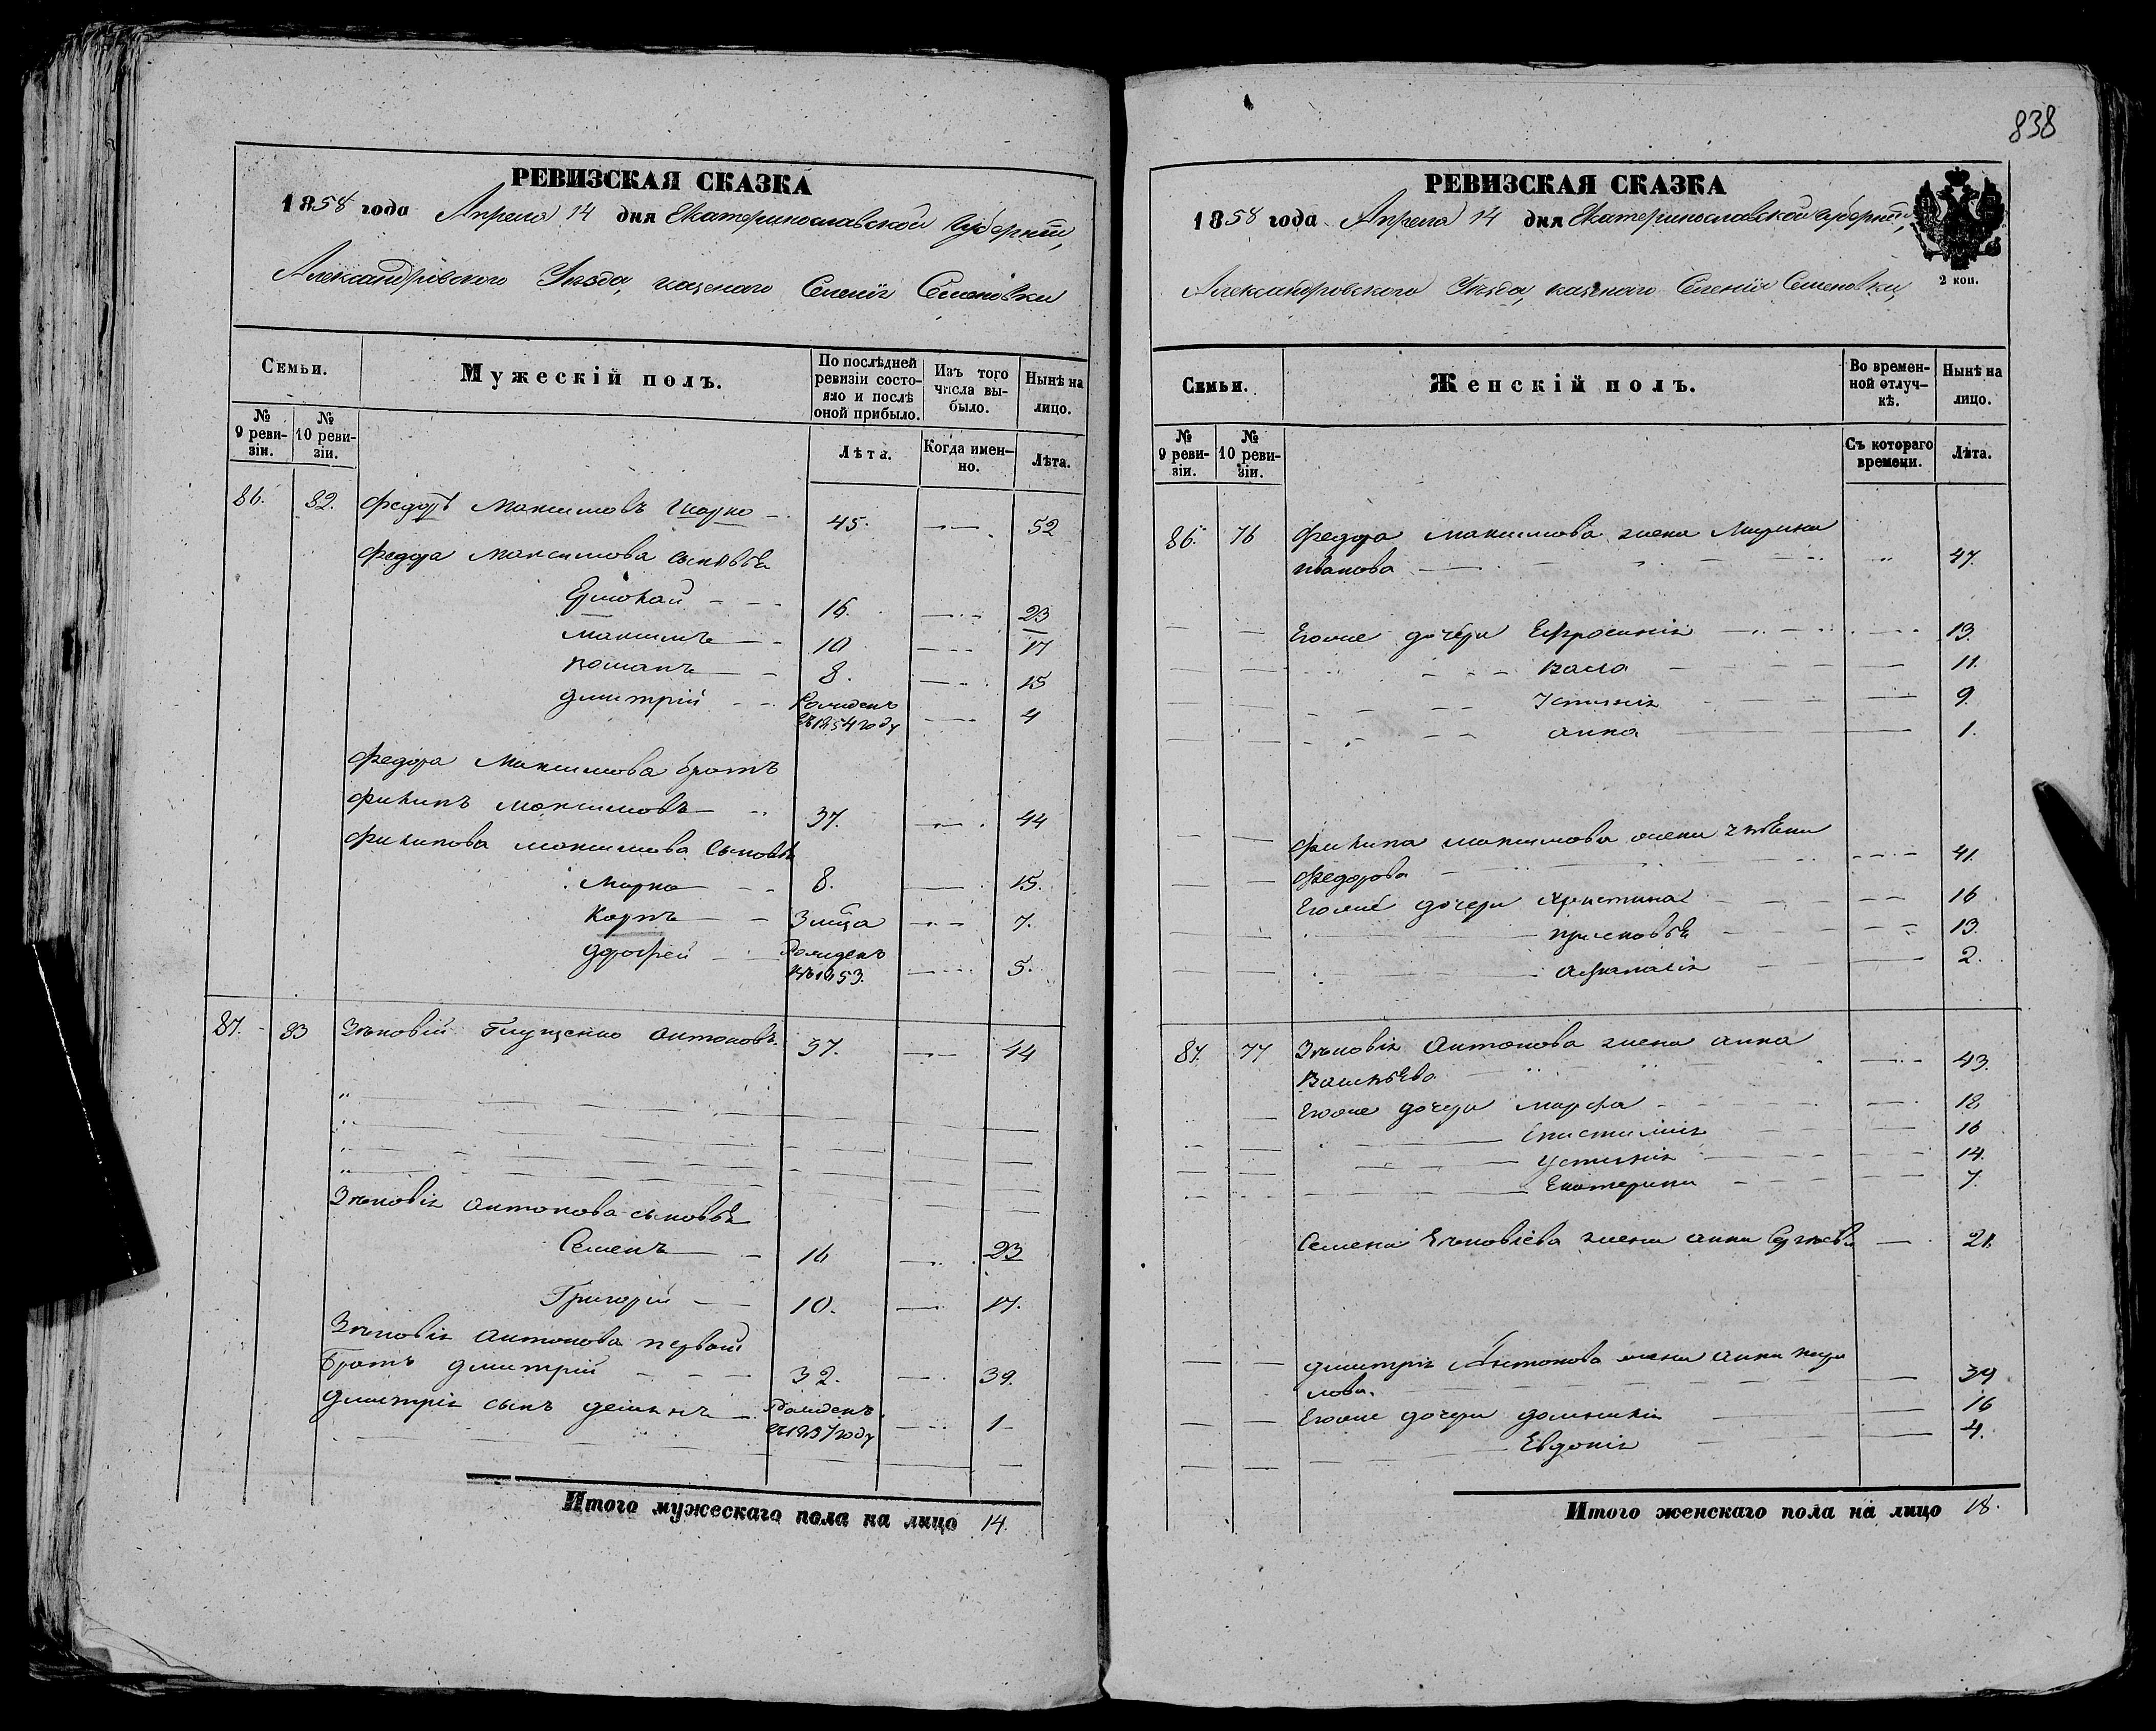 838
РЕВИЗСКАЯ СКАЗКА
1858 года Апреля 14 дня Екатеринославской Губернии,
Александровского Уезда, казенаго Селенія Семеновки
Семьи.
Мужескій полъ.
По послѣдней ревизіи состояло и послѣ оной прибыло.
Изъ того числа выбыло.
Нынѣ на лицо.
№ 9 ревизіи.
№ 10 ревизіи.
Лѣта.
Когда именно.
Лѣта.
86. 82. Федоръ Максимовъ Шарко 45. 52
Федора Максимова сыновья
Ермолай 16. 23
Максимъ 10 17
Романъ 8. 15
Дмитрій Рожденъ въ 1854 году 4
Федора Максимова братъ
Филипъ Максимовъ 37. 44
Филипова Максимова Сыновья
Марко 8. 15.
Карпъ 3 мѣца 7.
Дорофей Рожденъ въ 1853. 5.
87. 83 Зѣновій Глущенко Антоновъ. 37. 44
Зѣновія Антонова сыновья
Семенъ 16 23
Григорій 10. 17.
Зѣновія Антонова первой
Братъ Дмитрій 32. 39.
Дмитрія сынъ Демьянъ Рожденъ въ 1857 году 1
Итого мужескаго пола на лицо 14.
РЕВИЗСКАЯ СКАЗКА
1858 года Апреля 14 дня Екатеринославской Губерніи,
2 коп.
Александровского Уезда, казенаго Селенія Семеновки
Семьи.
Женскій полъ.
Во временной отлучкѣ.
Нынѣ на лицо.
№ 9 ревизіи.
№ 10 ревизіи.
Съ котораго времени.
Лѣта.
86. 76 Федора Максимова жена Марина
Иванова 47.
Егоже дочери Ефросинія 13.
Васса 11.
Устинія 9.
Анна 1.
Филипа Максимова жена
Федорова 41.
Егоже дочери Христина 16
13.
Афанасія 2.
87. 77 Зѣновія Антонова жена Анна
Васильева 43.
Егоже дочери Марфа 18
Епистимія 16
Устинія 14.
Екатерина 7.
Семена Зѣновіева жена Анна Сергѣева 21.
Дмитрія Антонова жена Анна Кири
лова. 39
Егоже дочери Домникія 16
Евдокія 4.
Итого женскаго пола на лицо 18.